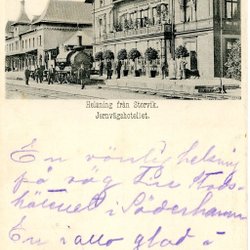 Helsning från Storvik.
Jernvägshotellet.
En vänlig helsning
på väg till Stads-
hotellet i Söderhamn
En i allo glad i